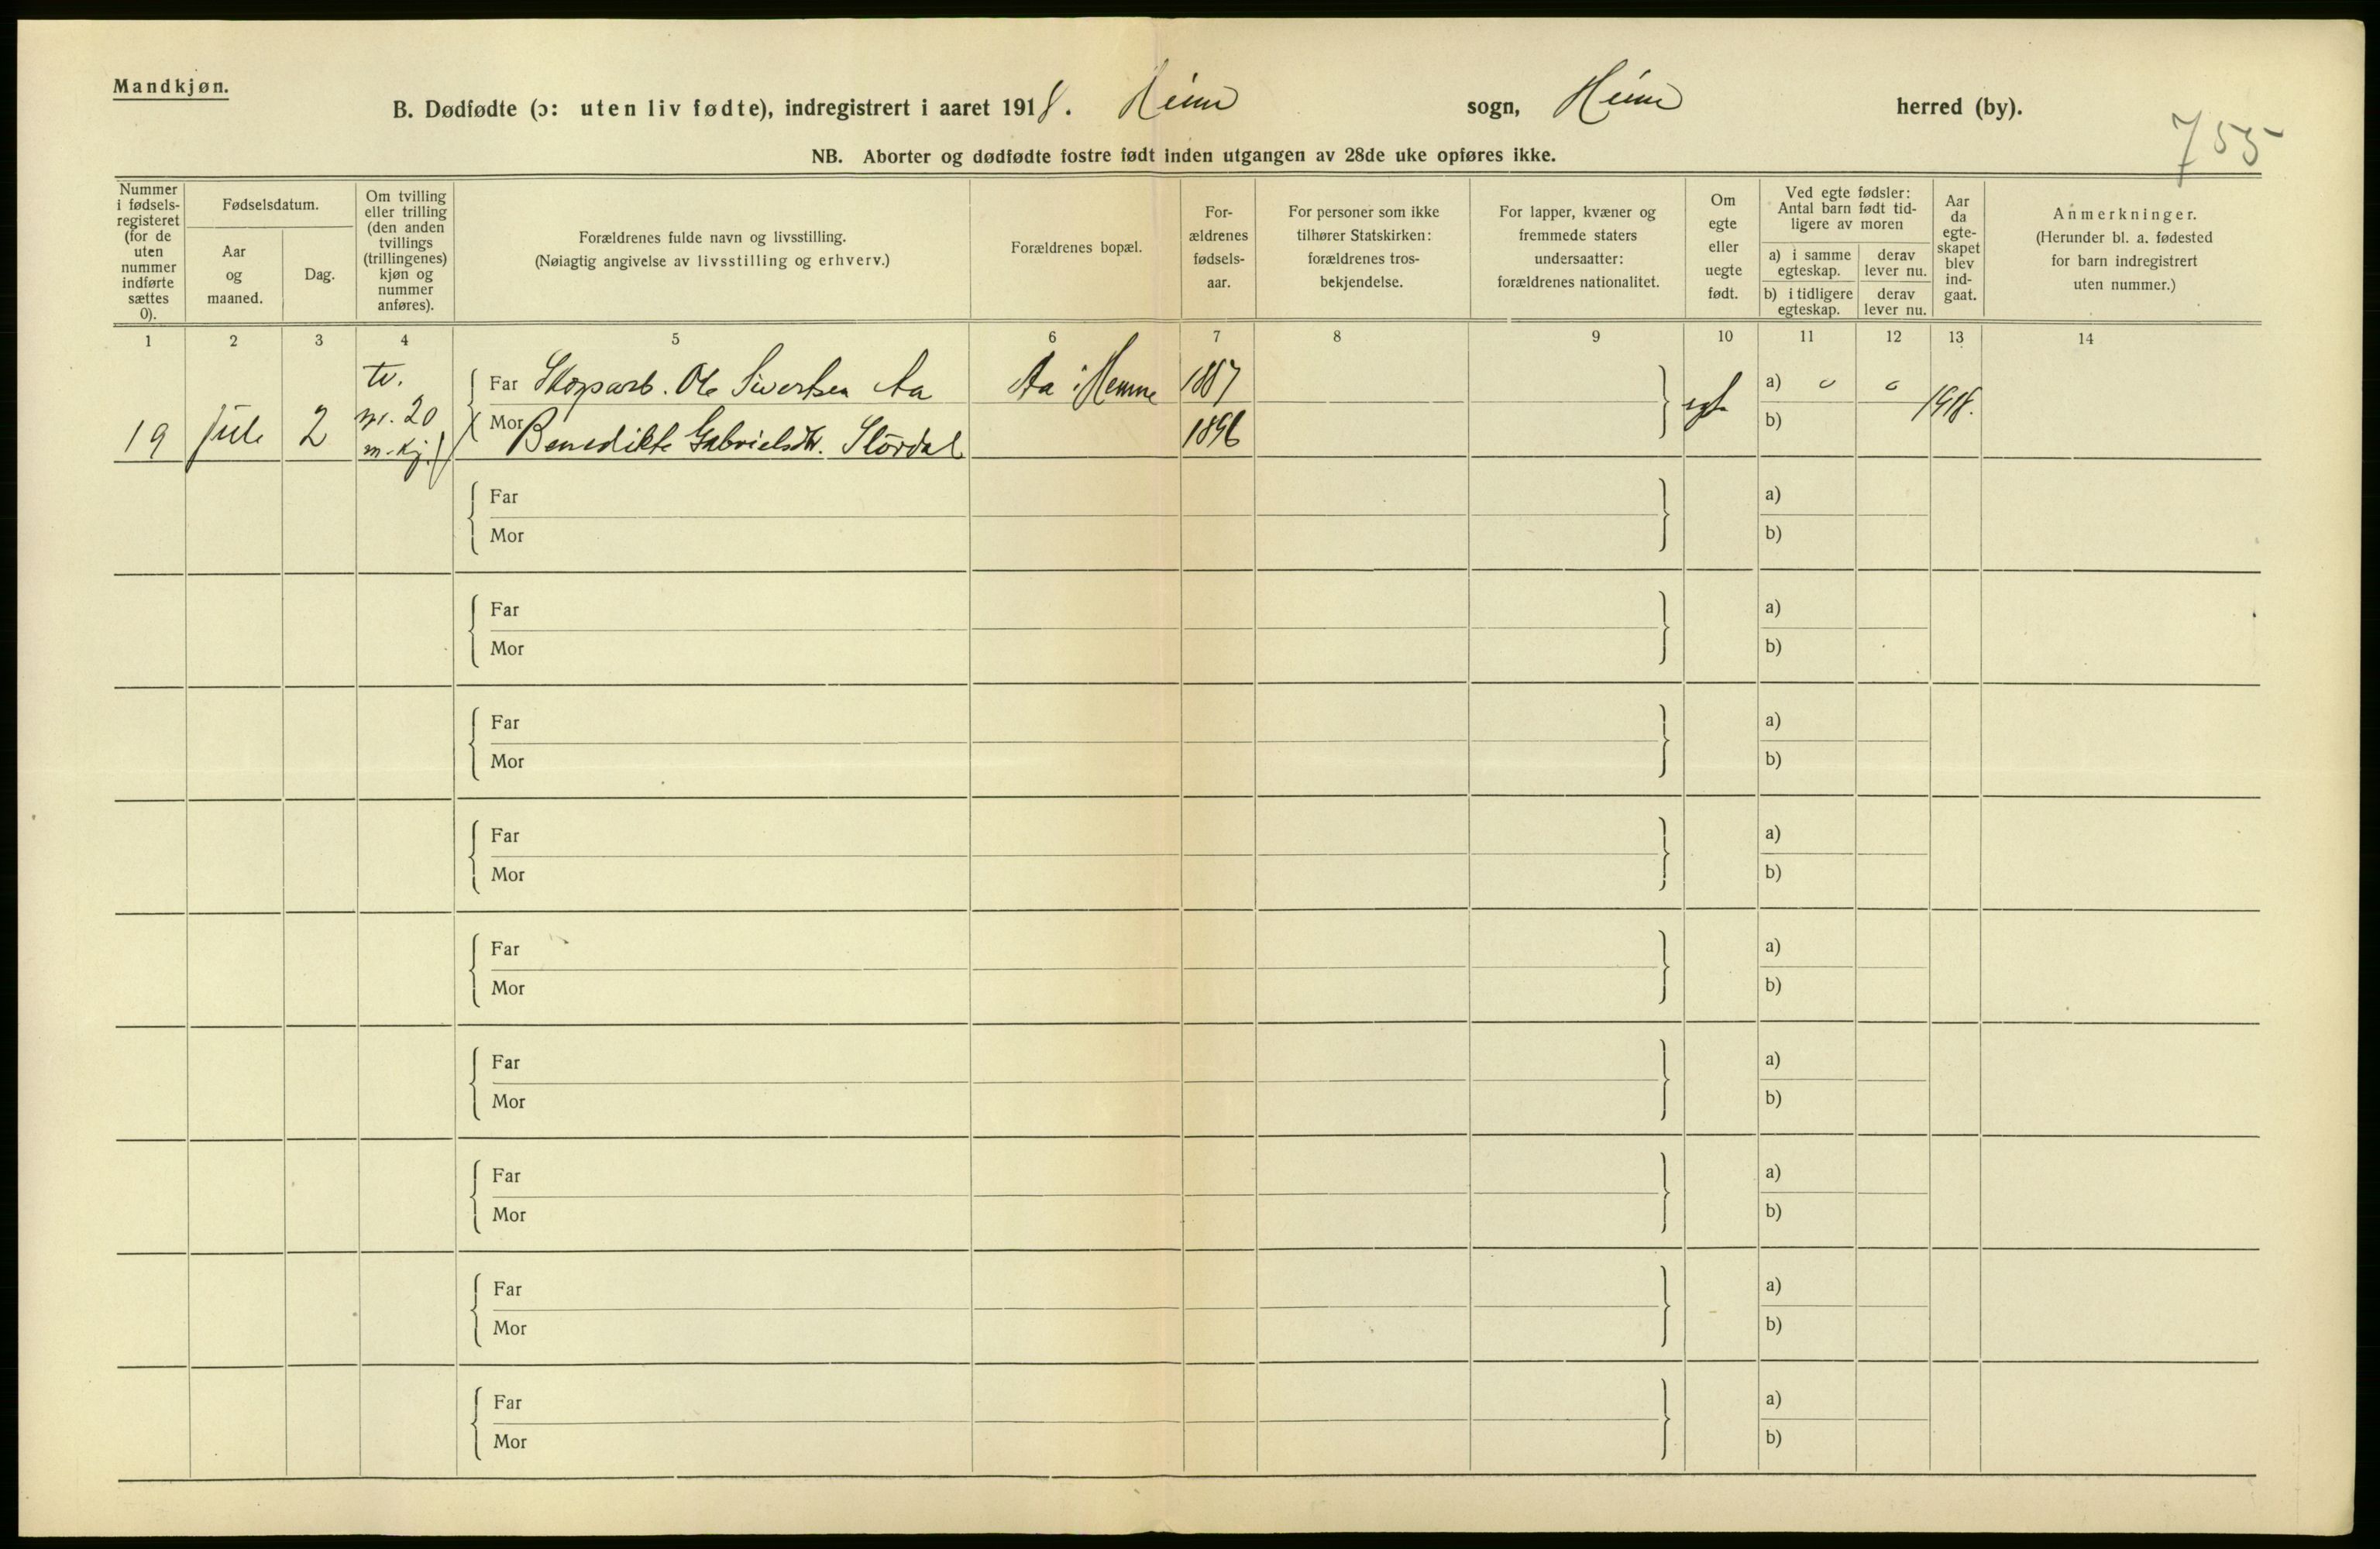 Mandkjøn.
B. Dødfødte (ɔ: uten liv fødte), indregistrert i aaret 1918. Heim sogn, Heim herred (by).
755
NB. Aborter og dødfødte fostre født inden utgangen av 28de uke opføres ikke.
Nummer i fødsels-registeret (for de uten nummer indførte sættes 0).
Fødselsdatum.
Aar og maaned.
Dag.
Om tvilling eller trilling (den anden tvillings (trillingenes) kjøn og nummer anføres).
Forældrenes fulde navn og livsstilling.
(Nøiagtig angivelse av livsstilling og erhverv.)
Forældrenes bopæl.
For-ældrenes fødsels-aar.
For personer som ikke tilhører Statskirken: forældrenes tros-bekjendelse.
For lapper, kvæner og fremmede staters undersaatter: forældrenes nationalitet.
Om egte eller uegte født.
Ved egte fødsler: Antal barn født tid-ligere av moren
a) i samme egteskap.
derav lever nu.
b) i tidligere egteskap.
derav lever nu.
Aar da egte-skapet blev ind-gaat.
Anmerkninger.
(Herunder bl. a. fødested for barn indregistrert uten nummer.)
1 2 3 4 5 6 7 8 9 10 11 12 13 14
tv.
Far Skogsarb. Ole Sivertsen Aa Aa i Hemne 1887 a) 0 0
19 Juli 2 nr. 20 m.kj. Mor Benedikte Gabrielsdtr. Stördal 1896 egte b) 1918.
Far a)
Mor b)
Far a)
Mor b)
Far a)
Mor b)
Far a)
Mor b)
Far a)
Mor b)
Far a)
Mor b)
Far a)
Mor b)
Far a)
Mor b)
Far a)
Mor b)